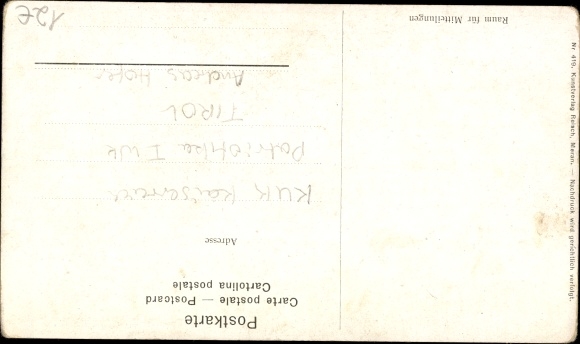 Postkarte
Carte postale — Postcard
Cartolina postale
Adresse
KUK Kaiserreich
Patriotika I WK
TIROL
Andreas Hofer
12€
Raum für Mitteilungen
Nr 419. Kunstverlag Reisch, Meran. — Nachdruck wird gerichtlich verfolgt.